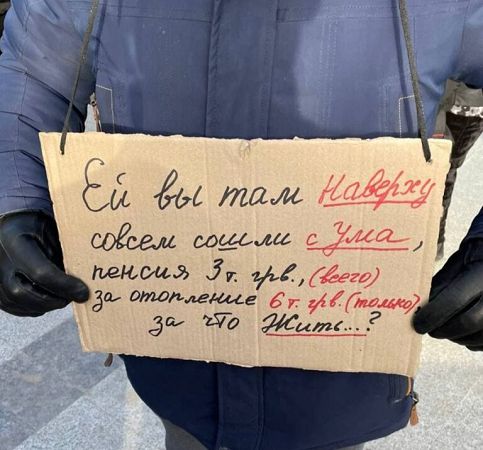 Ей вы там Наверху
совсем сошли с Ума,
пенсия 3т. грв., (всего)
за отопление 6 т. грв. (только),
за что Жить...?